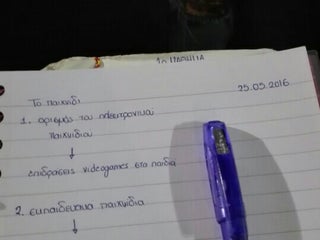 Το παιχνίδι
25.05.2016
1. ορισμός του ηλεκτρονικού
παιχνιδιού
↓
επιδράσεις videogames στα παιδιά
2. εκπαιδευτικά παιχνίδια
↓